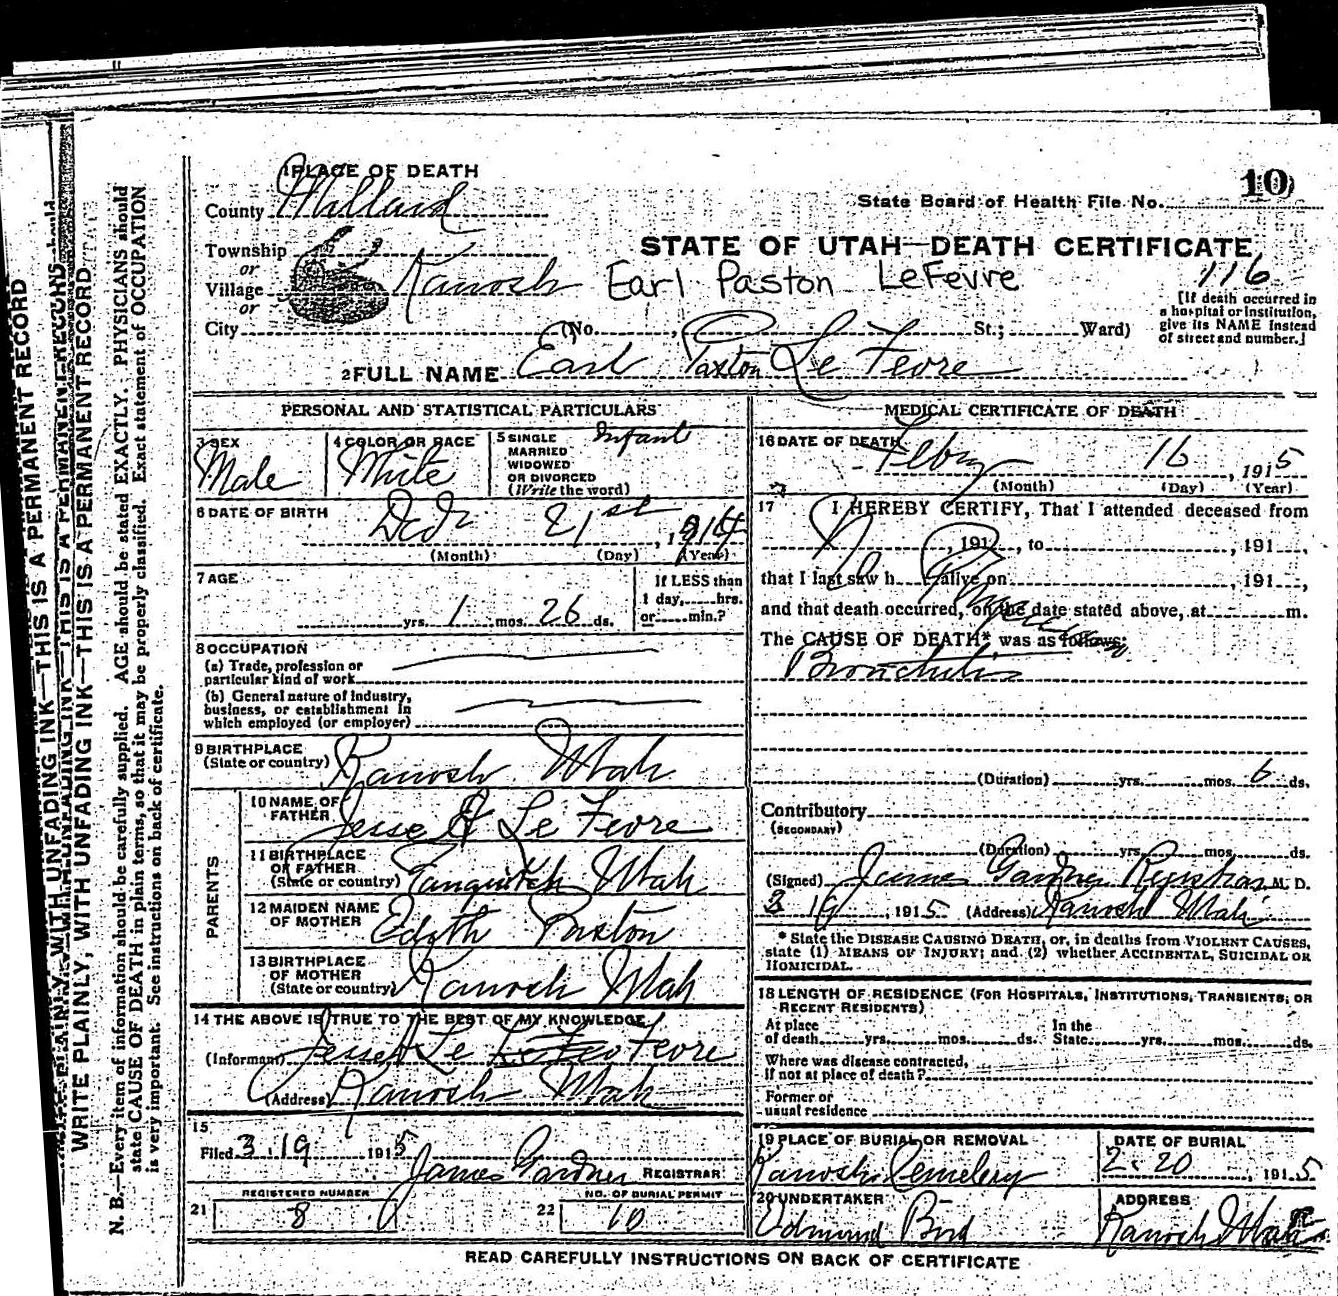 1 PLACE OF DEATH
County Millard
State Board of Health File No. 10
Township
or
Village Kanosh
or
City (No. St.; Ward)
STATE OF UTAH—DEATH CERTIFICATE
Earl Paston LeFevre
116
[If death occurred in
a hospital or institution,
give its NAME instead
of street and number.]
2 FULL NAME Earl Paxton Le Fevre
PERSONAL AND STATISTICAL PARTICULARS
3 SEX
Male
4 COLOR OR RACE
White
5 SINGLE
MARRIED
WIDOWED
OR DIVORCED
(Write the word)
Infant
6 DATE OF BIRTH
21st, 1914
(Month) (Day) (Year)
7 AGE
yrs. 1 mos. 26 ds.
If LESS than
1 day, hrs.
or min.?
8 OCCUPATION
(a) Trade, profession or
particular kind of work
(b) General nature of industry,
business, or establishment in
which employed (or employer)
9 BIRTHPLACE
(State or country) Kanosh Utah
PARENTS
10 NAME OF
FATHER Jesse Le Fevre
11 BIRTHPLACE
OF FATHER
(State or country) Panguitch Utah
12 MAIDEN NAME
OF MOTHER Edyth Paxton
13 BIRTHPLACE
OF MOTHER
(State or country) Kanosh Utah
14 THE ABOVE IS TRUE TO THE BEST OF MY KNOWLEDGE
(Informant) Jesse Le Fevre
(Address) Kanosh Utah
15
Filed 3.19 1915 James Gardner REGISTRAR
REGISTERED NUMBER
21 8
NO. OF BURIAL PERMIT
22 10
MEDICAL CERTIFICATE OF DEATH
16 DATE OF DEATH
Febry 16, 1915
(Month) (Day) (Year)
17 I HEREBY CERTIFY, That I attended deceased from
No, 191, to, 191,
that I last saw h alive on, 191,
and that death occurred, on the date stated above, at m.
The CAUSE OF DEATH* was as follows:
Bronchitis
(Duration) yrs. mos. 6 ds.
Contributory
(SECONDARY)
(Duration) yrs. mos. ds.
(Signed) James Gardner Registrar M. D.
3 19, 1915 (Address) Kanosh Utah
* State the DISEASE CAUSING DEATH, or, in deaths from VIOLENT CAUSES,
state (1) MEANS OF INJURY; and (2) whether ACCIDENTAL, SUICIDAL OR
HOMICIDAL.
18 LENGTH OF RESIDENCE (FOR HOSPITALS, INSTITUTIONS, TRANSIENTS, OR
RECENT RESIDENTS)
At place
of death yrs. mos. ds.
In the
State yrs. mos. ds.
Where was disease contracted,
If not at place of death?
Former or
usual residence
19 PLACE OF BURIAL OR REMOVAL
Kanosh Cemetery
DATE OF BURIAL
2.20, 1915
20 UNDERTAKER
Edmund Bird
ADDRESS
Kanosh Utah
READ CAREFULLY INSTRUCTIONS ON BACK OF CERTIFICATE
WRITE PLAINLY, WITH UNFADING INK—THIS IS A PERMANENT RECORD
N. B.—Every item of information should be carefully supplied. AGE should be stated EXACTLY. PHYSICIANS should
state CAUSE OF DEATH in plain terms, so that it may be properly classified. Exact statement of OCCUPATION
is very important. See instructions on back of certificate.